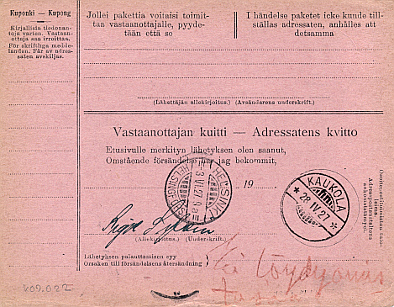 Kuponki — Kupong
Kirjallisia tiedonan-
toja varten. Vastaan-
ottaja saa irroittaa.
För skriftliga medde-
landen. Får av adres-
saten avskiljas.
Jollei pakettia voitaisi toimit-
taa vastaanottajalle, pyyde-
tään että se
I händelse paketet icke kunde till-
ställas adressaten, anhålles att
detsamma
(Lähettäjän allekirjoitus.) (Avsändarens underskrift.)
Vastaanottajan kuitti — Adressatens kvitto
Etusivulle merkityn lähetyksen olen saanut,
Omstående försändelse har jag bekommit,
19
HELSINKI
HELSINGFORS
KAUKOLA
28 IV 27
(Allekirjoitus.) (Underskrift.)
Lähetyksen palauttamisen syy
Orsaken till försändelsens återsändning
Ei löydy